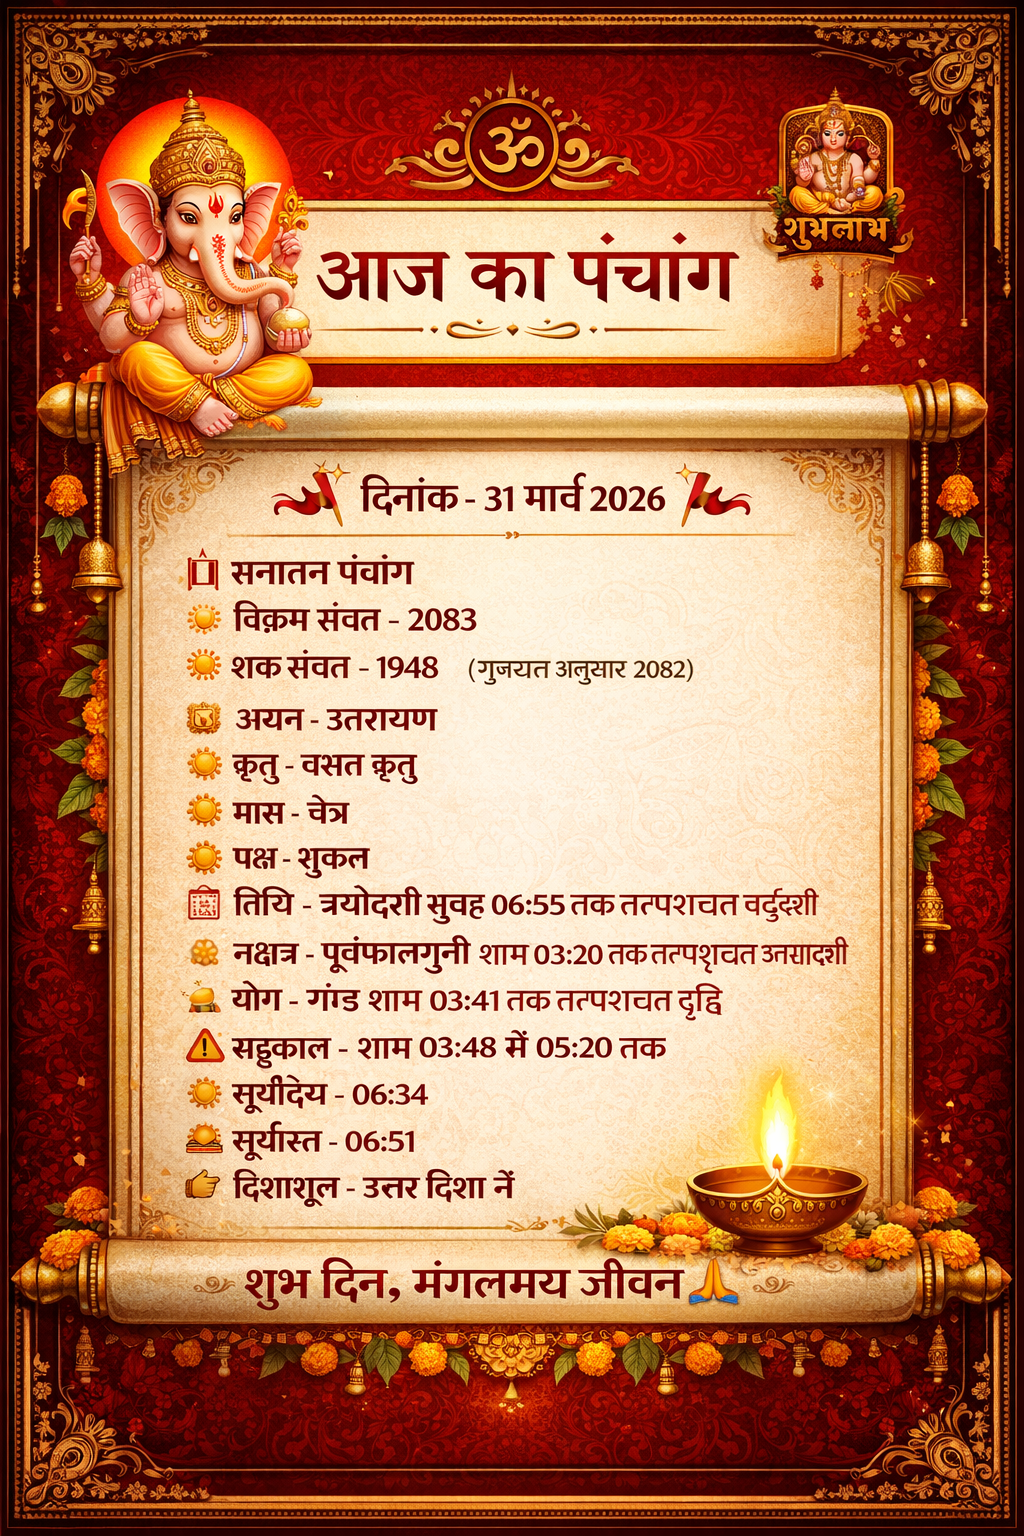 ॐ
शुभलाभ
आज का पंचांग
दिनांक - 31 मार्व 2026
सनातन पंवांग
विक्रम संवत - 2083
शक संवत - 1948 (गुजयत अनुसार 2082)
अयन - उतरायण
क्रृतु - वसत क्रृतु
मास - चेत्र
पक्ष - शुकल
तियि - त्रयोदशी सुवह 06:55 तक तत्पशचत वर्दुदशी
नक्षत्र - पूवंफालगुनी शाम 03:20 तक तत्पशृचत
योग - गंाड शाम 03:41 तक तत्पशचत दृद्वि
सड्डुकाल - शाम 03:48 में 05:20 तक
सूर्यीदेय - 06:34
सूर्यास्त - 06:51
दिशाशूल - उत्तर दिशा नें
शुभ दिन, मंगलमय जीवन